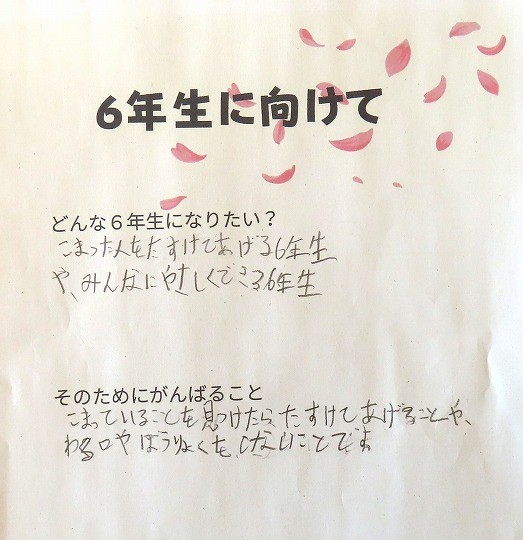 6年生に向けて
どんな6年生になりたい？
こまった人をたすけてあげる6年生
や、みんなにやさしくできる6年生
そのためにがんばること
こまっていることを見つけたらたすけてあげることや、
わる口やぼうりょくをしないことです